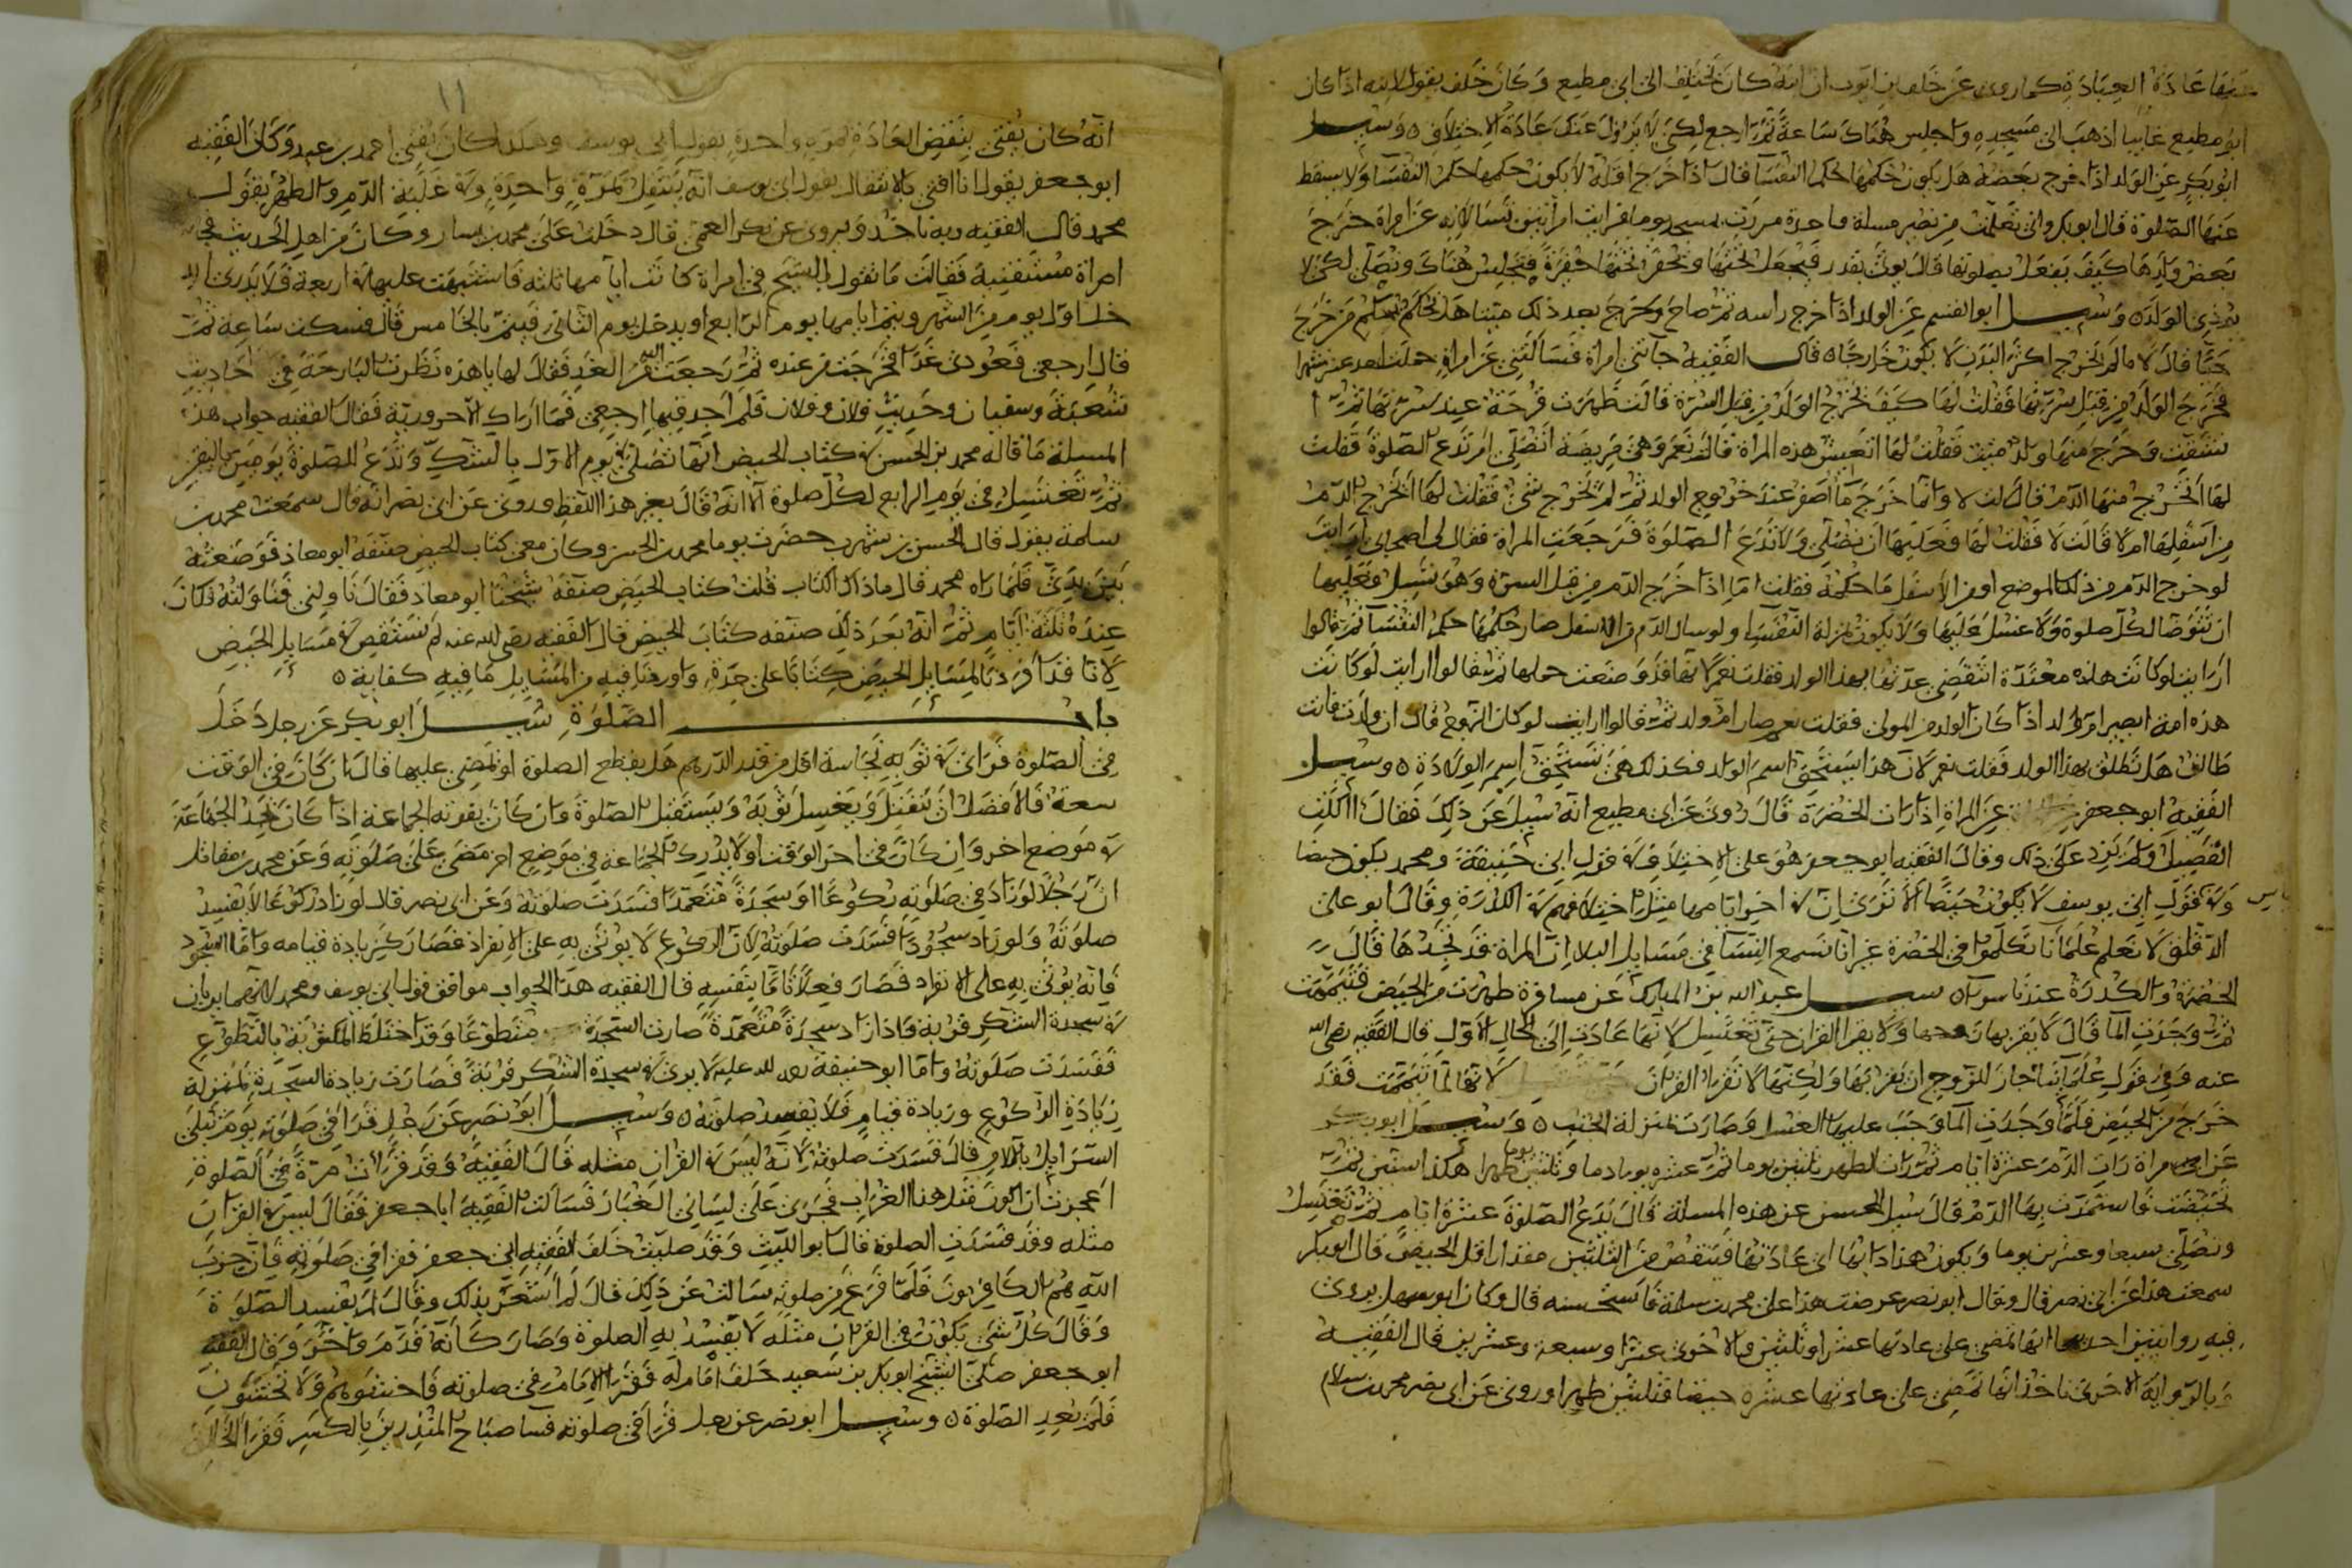 عادة العبادة كما روى عن خلف بن ايوب ان ابنه كان يختلف الى ابى مطيع وكان خلف يقول لابنه اذا كان
ابو مطيع غايبا اذهب الى مسجده واجلس هناك ساعة ثم ارجع لكى لا يزول عنك عادة الاختلاف ٥ وسيل
ابو بكر عن الولد اذا خرج بعضه هل يكون حكمها حكم النفسا قال اذا خرج اقله لا يكون حكمها حكم النفسا ولا يسقط
عنها الصلوة قال ابو بكر وانى تعلمت من نصير مسلة واحدة مررت بمسجد يوما فرايت امراتين تسالانه عن امراة خرج
بعض ولدها كيف يفعل بصلوتها قال يوتى بقدر فيجعل تحتها وتحفر تحتها حفرة فتجلس هناك وتصلى لكى لا
يوذى الولد ٥ وسيل ابو القسم عن الولد اذا خرج راسه ثم صاح وخرج بعد ذلك ميتا هل تحكم
حيا قال لا ما لم يخرج اكثر البدن لا يكون خارجا ٥ قال الفقيه جاتنى امراة فسالتنى عن امراة حملت احد عشر شهرا
فخرج الولد من قبل سرتها فقلت لها كيف يخرج الولد من قبل السرة قالت ظهرت قرحة عند سرتها ثم
تشققت وخرج منها ولد ميت فقلت لها اتعيش هذه المراة قالت نعم وهى مريضة اتصلى ام تدع الصلوة فقلت
لها ايخرج منها الدم قالت لا وانما خرج ما اصفر عند خروج الولد ثم لم يخرج شى فقلت لها ايخرج الدم
من اسفلها ام لا قالت لا فقلت لها فعليها ان تصلى ولا تدع الصلوة فرجعت المراة فقال لى اصحابى ارايت
لو خرج الدم من ذلك الموضع او من الاسفل ما حكمه فقلت اما اذا خرج الدم من قبل السرة وهو يسيل فعليها
ان تتوضا لكل صلوة ولا غسل عليها ولا يكون بمنزلة النفسا ولو سال الدم من الاسفل صار حكمها حكم النفسا ثم قالوا
ارايت لو كانت هذه معتدة اتنقضى عدتها بهذا الولد فقلت نعم لانها قد وضعت حملها ثم قالوا ارايت لو كانت
هذه امة ايصير ام ولد اذا كان الولد من المولى فقلت نعم صار ام ولد ثم قالوا ارايت لو كان الزوج قال ان ولدت فانت
طالق هل تطلق بهذا الولد فقلت نعم لان هذا يستحق اسم الولد فكذلك هى تستحق اسم الولادة ٥ وسيل
الفقيه ابو جعفر عن المراة اذا رات الخضرة قال روى عن ابى مطيع انه سيل عن ذلك فقال اكلت
الفصيل ولم يزد على ذلك وقال الفقيه ابو جعفر هو على الاختلاف فى قول ابى حنيفة ومحمد يكون حيضا
وفى قول ابى يوسف لا يكون حيضا الا ترى ان فى اخر ايامها مثل اختلافهم فى الكدرة وقال ابو على
الدقاق لا نعلم علمانا تكلموا فى الخضرة غير انا نسمع النسا فى مسايل البلا ان المراة قد تجدها قال
الخضرة والكدرة عندنا سوا ٥ سيل عبد الله بن المبارك عن مسافرة طهرت من الحيض فتيممت
ثم وجدت الما قال لا يقربها زوجها ولا يقرا القران حتى تغتسل لانها عادت الى الحال الاول قال الفقيه رضى الله
عنه وفى قول علمائنا جاز للزوج ان يقربها ولكنها لا تقرا القران لانها لما تيممت فقد
خرج من الحيض فلما وجدت الما وجب عليها الغسل وصارت بمنزلة الجنب ٥ وسيل ابو بكر
عن امراة رات الدم عشرة ايام ثم رات الطهر ثلثين يوما ثم عشره يوما دما وثلثين يوما طهرا هكذا سنين ثم
تحيضت فاستمرت بها الدم قال سيل الحسن عن هذه المسلة قال تدع الصلوة عشرة ايام ثم تغتسل
وتصلى سبعا وعشرين يوما ويكون هذا دابها الى عادتها فينقص من الثلثين مقدار اقل الحيض قال ابو بكر
سمعت هذا عن ابى نصر قال وقال ابو نصر عرضت هذا على محمد بن سلمة فاستحسنه قال وكان ابو سهل يروى
فيه روايتين احدهما انها تمضى على عادتها عشرا وثلثين والاخرى عشرا وسبعة وعشرين قال الفقيه
وبالرواية الاخرى ناخذ انها تمضى على عادتها عشرة حيضا وثلثين طهرا وروى عن ابى نصر محمد بن سلام
١١
انه كان يفتى بنقض العادة بمرة واحدة بقول ابى يوسف وهكذا كان يفتى احمد بن عبد وكان الفقيه
ابو جعفر يقول انا افتى بالانتقال بقول ابى يوسف انه ينتقل بمرة واحدة وفى غلبة الدم والطهر بقول
محمد قال الفقيه وبه ناخذ ويروى عن بكر العمى قال دخلت على محمد بن يسار وكان من اهل الحديث
امراة مستفتية فقالت ما تقول ايها الشيخ فى امراة كانت ايامها ثلثه فاشتبهت عليها فى اربعة فلا تدرى
اول يوم من الشهر ويتم ايامها يوم الرابع او يدخل يوم الثانى فيتم بالخامس قال فسكت ساعة ثم
قال ارجعى فعودى غدا فخرجت من عنده ثم رجعت اليه من الغد فقال لها يا هذه نظرت البارحة فى احاديث
شعبة وسفيان وحديث فلان وفلان فلم اجد فيها ارجعى فما اراك الا حرورية فقال الفقيه جواب هذه
المسلة ما قاله محمد بن الحسن فى كتاب الحيض انها تصلى فى يوم الاول بالشك وتدع الصلوة يومين باليقين
ثم تغتسل فى يوم الرابع لكل صلوة الا انه قال بغير هذا اللفظ وروى عن ابى نصر انه قال سمعت محمد بن
سلمة يقول قال الحسن بن شهرب حضرت يوما محمد بن الحسن وكان معى كتاب الحيض صنفه ابو معاذ فوضعته
بين يدى فلما راه محمد قال ما ذاك الكتاب قلت كتاب الحيض صنفه شيخنا ابو معاذ فقال ناولنى فناولته فكان
عنده ثلثة ايام ثم انه بعد ذلك صنف كتاب الحيض قال الفقيه رضى الله عنه لم نستقص فى مسايل الحيض
لانا قد افردنا لمسايل الحيض كتابا على حدة واوردنا فيه من المسايل ما فيه كفاية ٥
باب الصلوة سيل ابو بكر عن رجل دخل
فى الصلوة فراى فى ثوبه نجاسة اقل من قدر الدرهم هل يقطع الصلوة او يمضى عليها قال ان كان فى الوقت
سعة فالافضل ان ينفتل ويغسل ثوبه ويستقبل الصلوة وان كان يفوته الجماعة اذا كان يجد الجماعة
فى موضع اخر وان كان فى اخر الوقت او لا يدرك الجماعة فى موضع اخر مضى على صلوته وعن محمد بن مقاتل
ان رجلا لو زاد فى صلوته ركوعا او سجدة متعمدا فسدت صلوته وعن ابى نصر قال لو زاد ركوعا لا يفسد
صلوته ولو زاد سجودا فسدت صلوته لان الركوع لا يوتى به على الانفراد فصار كزيادة قيامه واما السجود
فانه يوتى به على الانفراد فصار فعلا تاما بنفسه قال الفقيه هذا الجواب موافق قول ابى يوسف ومحمد لانهما يريان
فى سجدة الشكر قربة فاذا زاد سجدة متعمدة صارت السجدة متطوعا وقد اختلط المكتوبة بالتطوع
ففسدت صلوته واما ابو حنيفة رحمه الله عليه لا يرى فى سجدة الشكر قربة فصارت زيادة السجدة بمنزلة
زيادة الركوع وزيادة قيام فلا يفسد صلوته ٥ وسيل ابو نصر عن رجل قرا فى صلوته يوم تبلى
السرايل باللام قال فسدت صلوته لانه ليس فى القران مثله قال الفقيه وقد قرات مرة فى الصلوة
اعجزت ان اكون مثل هذا الغراب فجرى على لسانى الغبار فسالت الفقيه ابا جعفر فقال ليس فى القران
مثله وقد فسدت الصلوة قال ابو الليث وقد صليت خلف الفقيه ابى جعفر فقرا فى صلوته فان حزب
الله هم الكافرون فلما فرغ من صلوته سالت عن ذلك قال لم اشعر بذلك وقال لم يفسد الصلوة
وقال كل شى يكون فى القران مثله لا يفسد به الصلوة وصار كانه قدم واخر وقال الفقيه
ابو جعفر صلى الشيخ ابو بكر بن سعيد خلف امام له فقرا الامام فى صلوته فاخشوهم ولا تخشون
فلم يعد الصلوة ٥ وسيل ابو نصر عن رجل قرا فى صلوته فسا صباح المنذرين بالكسر فقرا